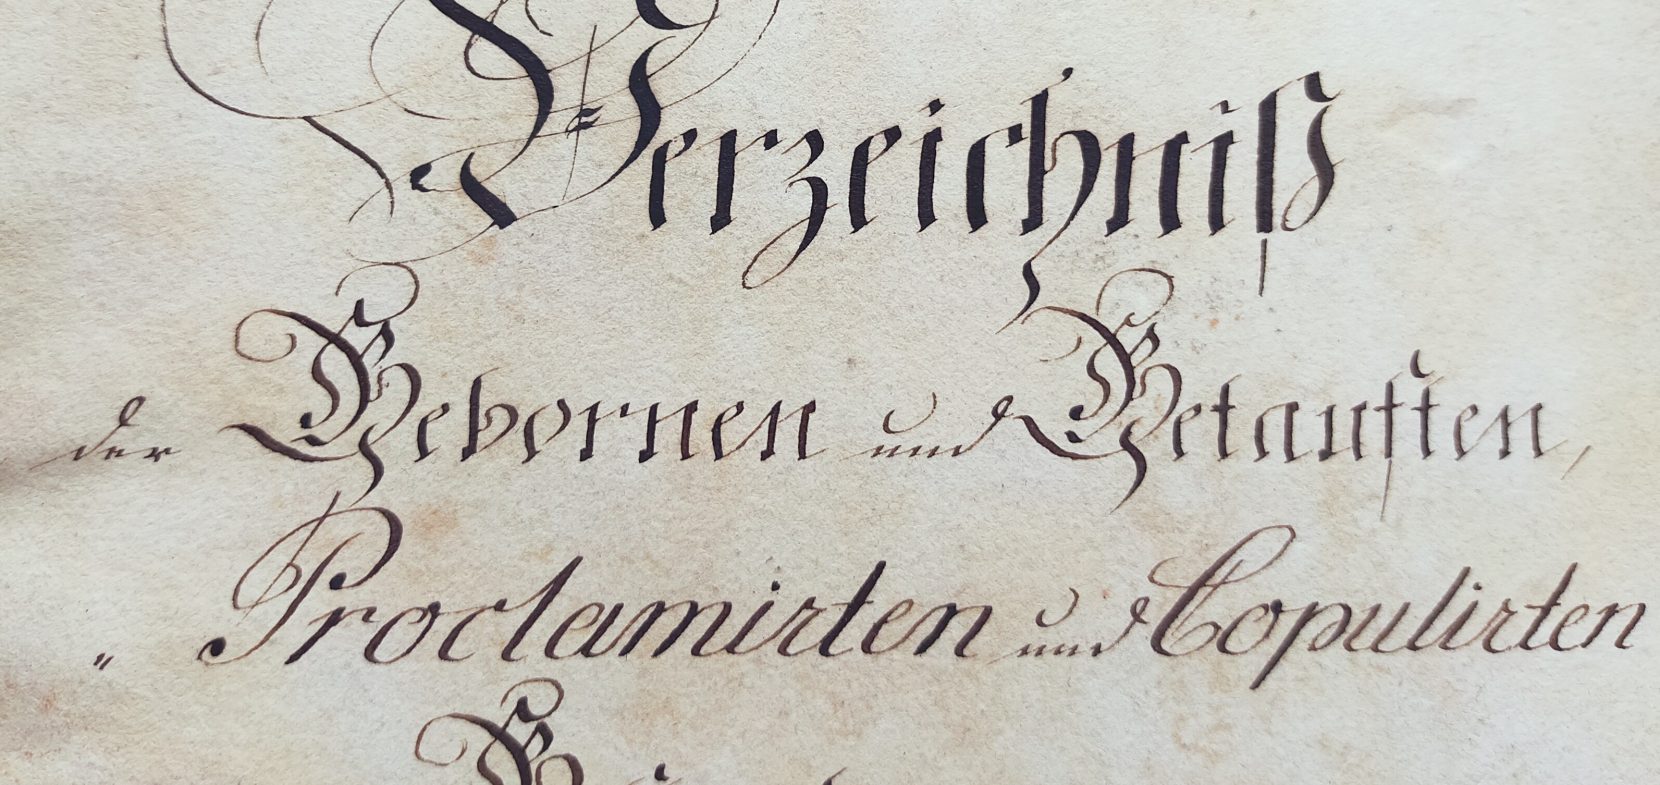 Verzeichniß
der Gebornen und Getauften,
„ Proclamirten und Copulirten